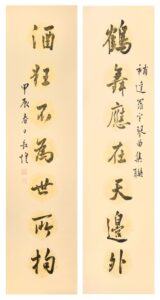 補達羅宇琴曲集聯
鶴舞應在天邊外
酒狂不為世所拘
甲辰春日